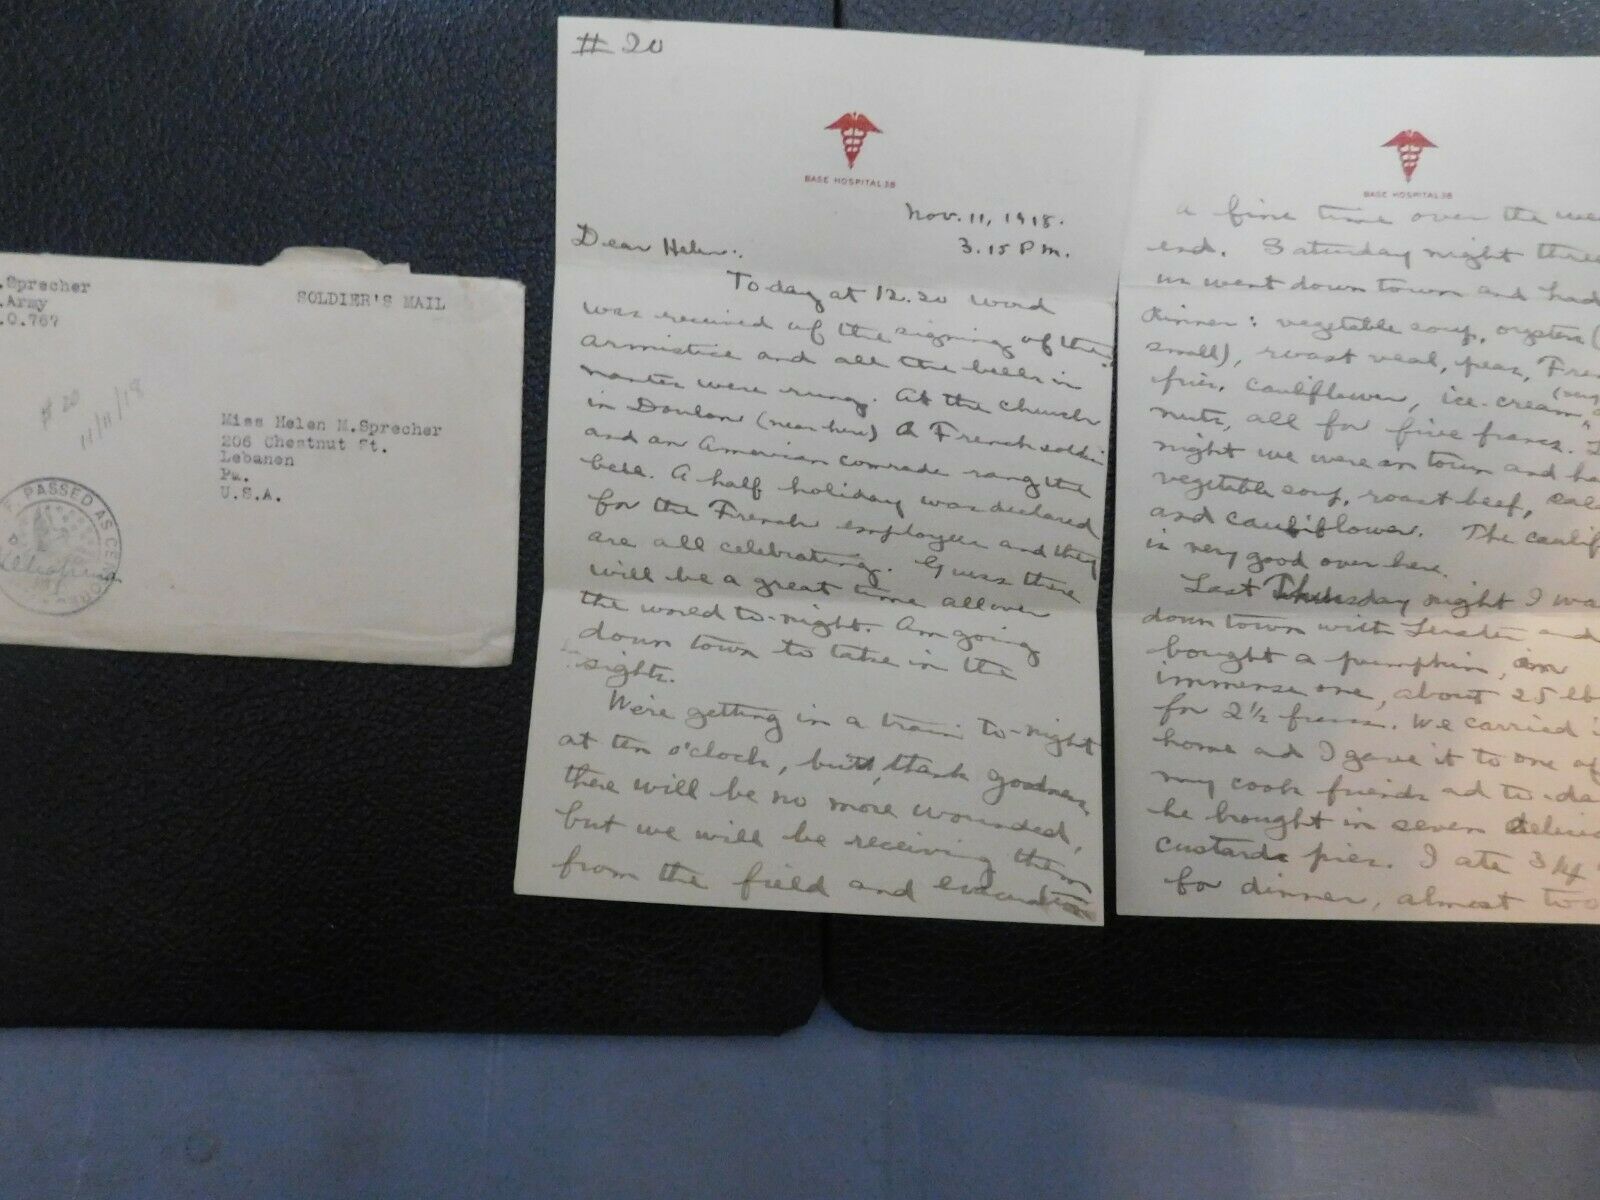 .Sprecher
.Army
.O.767
SOLDIER'S MAIL
# 20
11/11/18
Miss Helen M.Sprecher
206 Chestnut St.
Lebanon
Pa.
U.S.A.
PASSED AS CENSORED
# 20
BASE HOSPITAL 38
Nov. 11, 1918.
3.15 P.M.
Dear Helen:
Today at 12.20 word
was received of the signing of the
armistice and all the bells in
Nantes were rung. At the church
in Doulon (near here) a French soldi
and an American comrade rang the
bell. A half holiday was declared
for the French employees and they
are all celebrating. Guess there
will be a great time all over
the world to-night. Am going
down town to take in the
sights.
We're getting in a train to-night
at ten o'clock, but, thank goodness,
there will be no more wounded,
but we will be receiving them
from the field and evacuation
BASE HOSPITAL 38
a fine time over the we
end. Saturday night three
us went down town and had
dinner: vegetable soup, oysters (
small), roast veal, peas, Fren
fries, cauliflower, ice-cream,
(very
nuts, all for five francs."
night we were in town and ha
vegetable soup, roast beef,
and cauliflower. The caulif
is very good over here.
Last Thursday night I was
down town with and
bought a pumpkin, an
immense one, about 25 lb
for 2½ francs. We carried i
home and I gave it to one of
my cook friends ad to-da
he brought in seven delicio
custard pies. I ate 3/4
for dinner, almost two